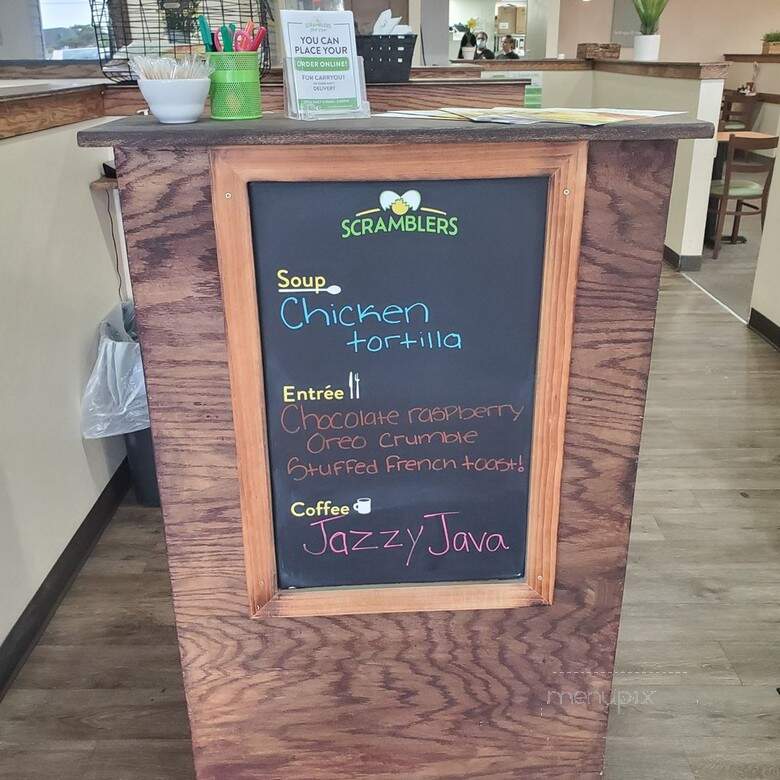 YOU CAN
PLACE YOUR
ORDER ONLINE!
FOR CARRYOUT
DELIVERY
SCRAMBLERS
Soup
Chicken
tortilla
Entrée
Chocolate raspberry
Oreo crumble
Stuffed French toast!
Coffee
Jazzy Java
menupix